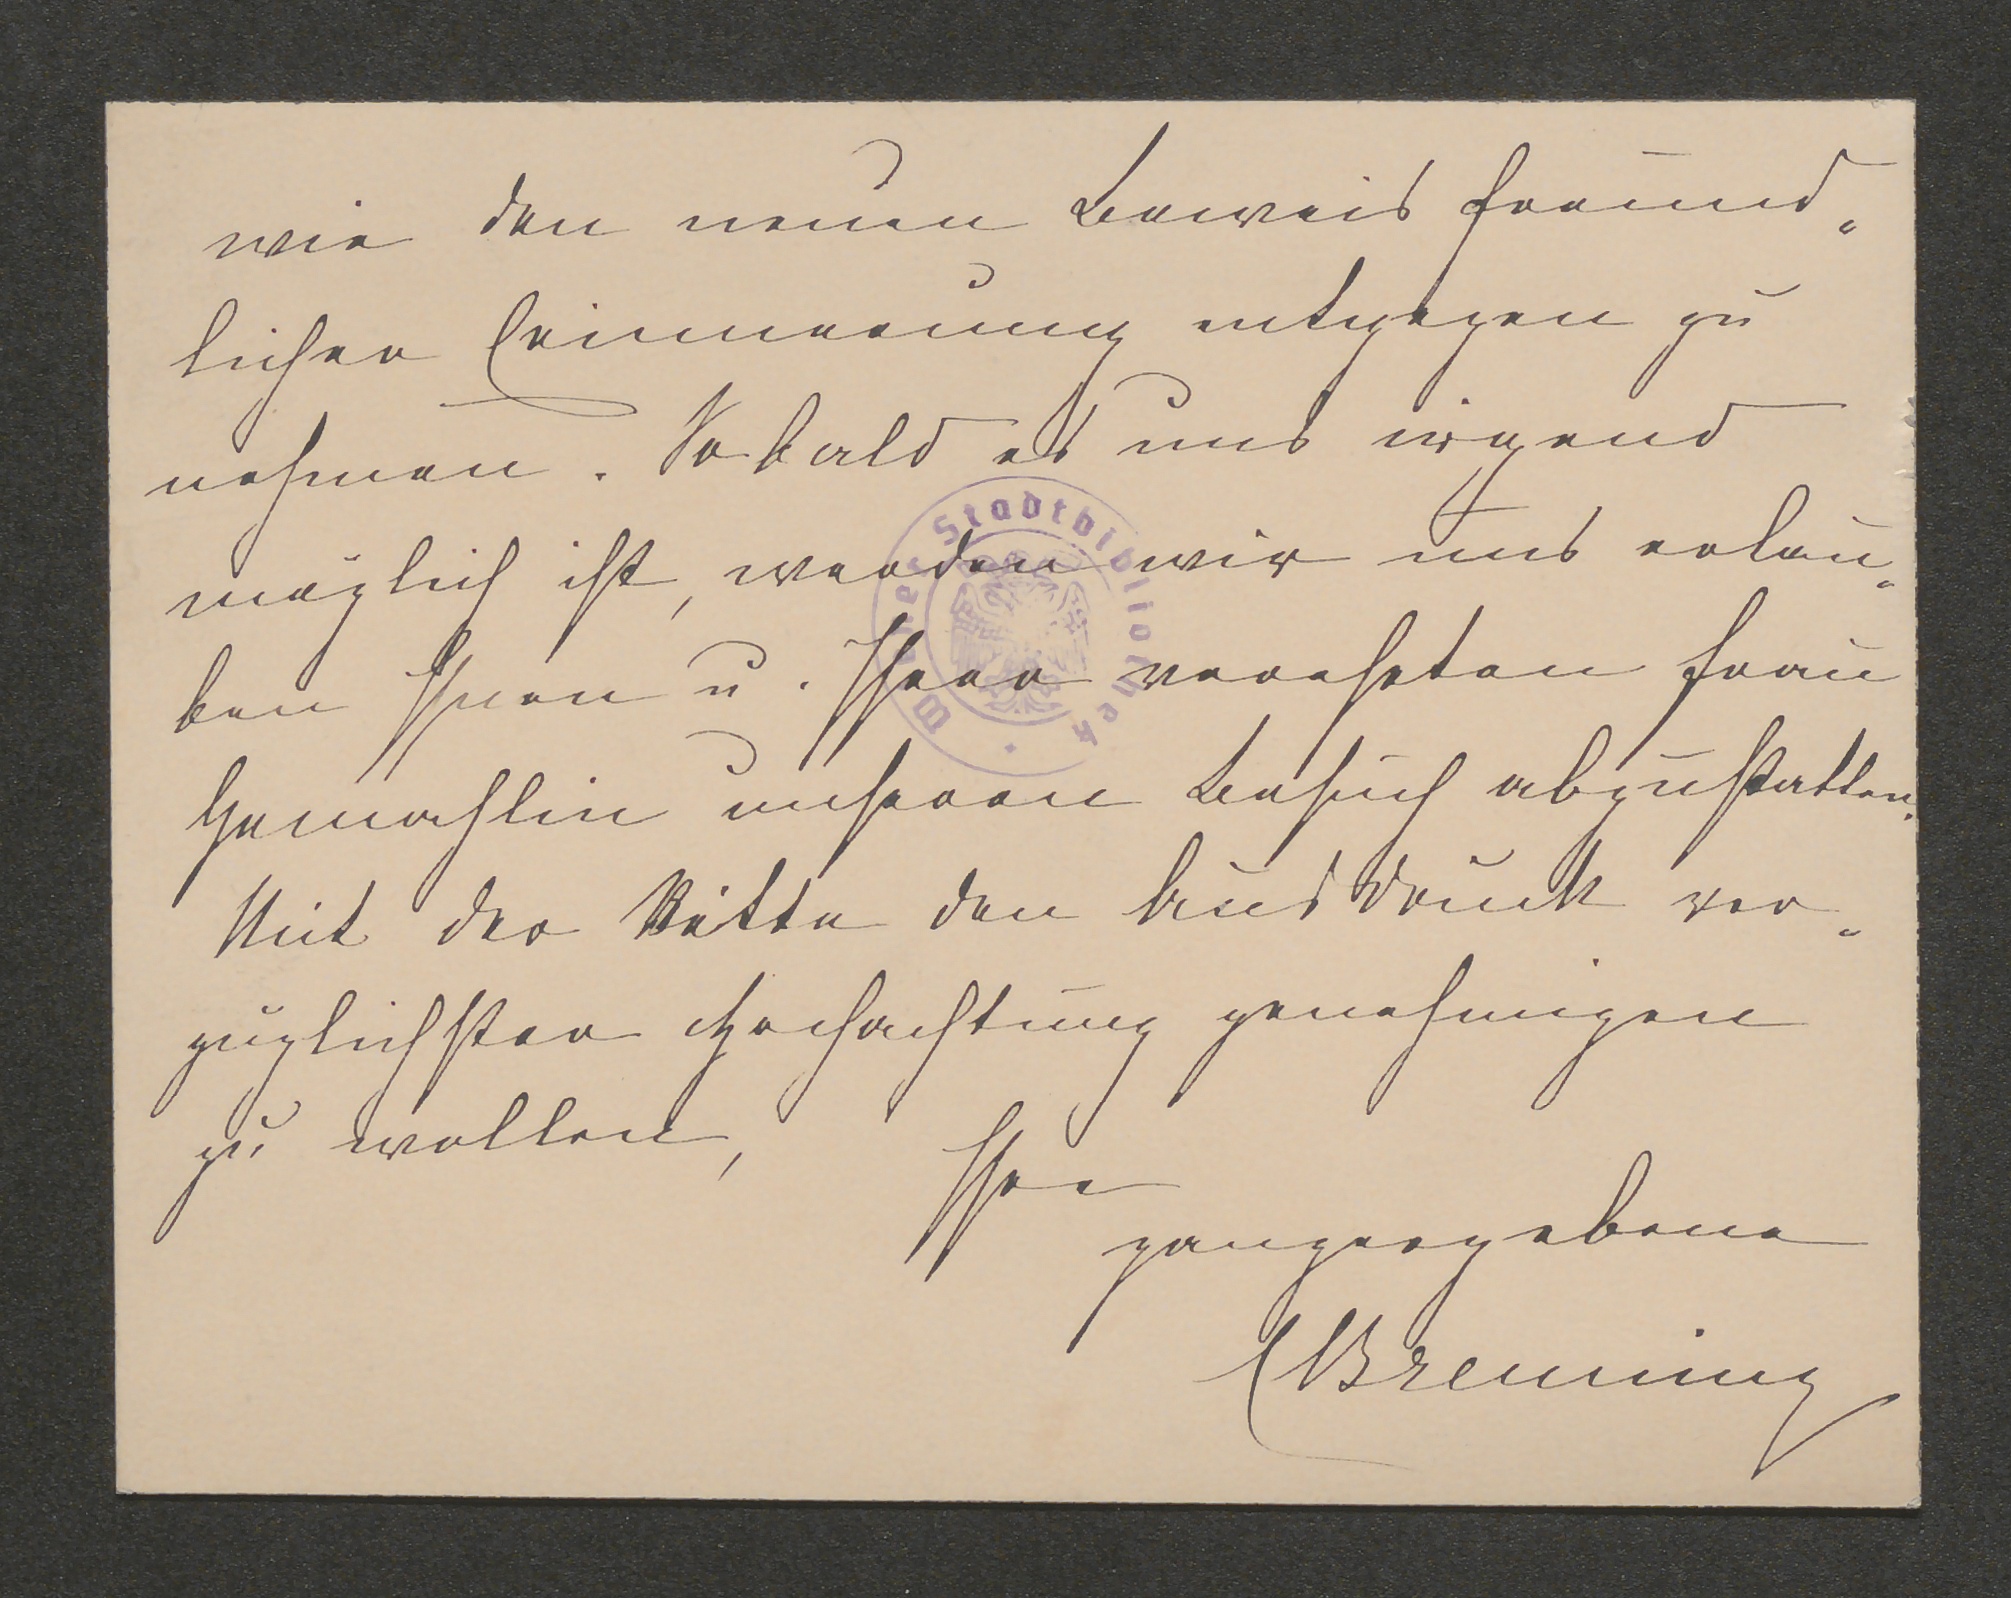 wie den neuen Beweis freund-
licher Erinnerung entgegen zu
nehmen. Sobald es uns irgend
möglich ist, werden wir uns erlau-
ben Ihnen u. Ihrer verehrten Frau
Gemahlin unseren Besuch abzustatten.
Mit der Bitte den Ausdruck vor-
züglichster Hochachtung genehmigen
zu wollen,
Ihre
ganzergebene
EBrenning
Wiener Stadtbibliothek